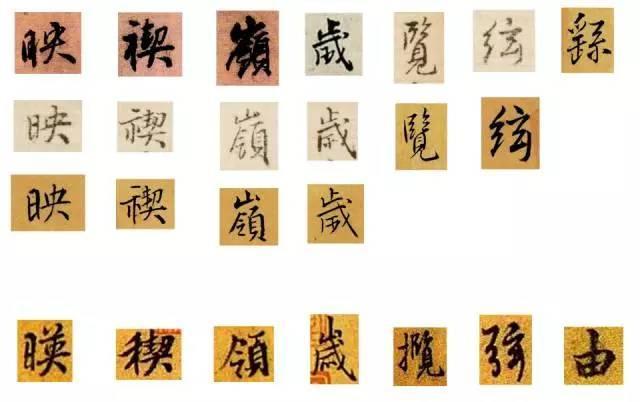 映 禊 嶺 歲 覽 絃 繇
映 禊 嶺 歲 覽 絃
映 禊 嶺 歲
暎 稧 領 歲 攬 弦 由